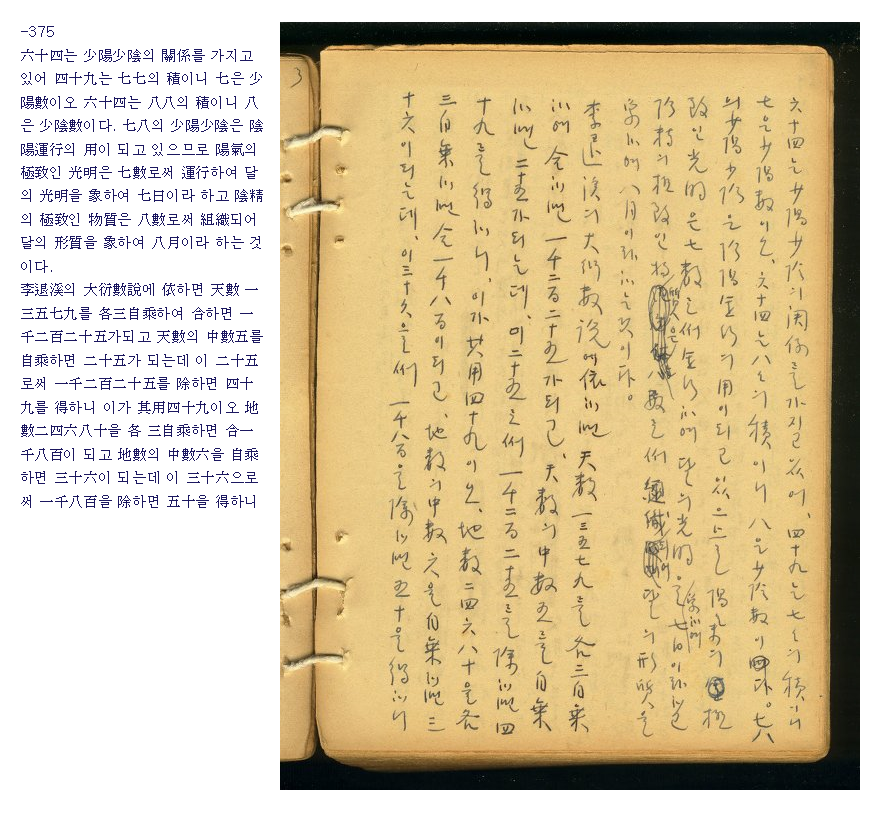 -375
六十四는 少陽少陰의 關係를 가지고
있어 四十九는 七七의 積이니 七은 少
陽數이오 六十四는 八八의 積이니 八
은 少陰數이다. 七八의 少陽少陰은 陰
陽運行의 用이 되고 있으므로 陽氣의
極致인 光明은 七數로써 運行하여 달
의 光明을 象하여 七日이라 하고 陰精
의 極致인 物質은 八數로써 組織되어
달의 形質을 象하여 八月이라 하는 것
이다.
李退溪의 大衍數說에 依하면 天數 一
三五七九를 各三自乘하여 合하면 一
千二百二十五가되고 天數의 中數五를
自乘하면 二十五가 되는데 이 二十五
로써 一千二百二十五를 除하면 四十
九를 得하니 이가 其用四十九이오 地
數二四六八十을 各 三自乘하면 合一
千八百이 되고 地數의 中數六을 自乘
하면 三十六이 되는데 이 三十六으로
써 一千八百을 除하면 五十을 得하니
3
六十四는 少陽少陰의 関係를 가지고 있어、四十九는 七七의 積이니
七은 少陽數이오、六十四는 八八의 積이니 八은 少陰數이다。七八
의 少陽少陰은 陰陽運行의 用이 되고 있으므로 陽氣의 極
致인 光明은 七數로써 運行하여 달의 光明을 象하여 七日이라 하고
陰精의 極致인 物質은 八數로써 組織되어 달의 形質을
象하여 八月이라 하는 것이다。
李退溪의 大衍數說에 依하면 天數 一三五七九를 各三自乘
하여 合하면 一千二百二十五가되고、天數의 中數五를 自乘
하면 二十五가되는데、이二十五로써 一千二百二十五를 除하면 四
十九를 得하니、이가 其用四十九이오、地數二四六八十을 各
三自乘하면 合一千八百이되고、地數의 中數六을 自乘하면 三
十六이되는데、이三十六으로써 一千八百을 除하면 五十을 得하니